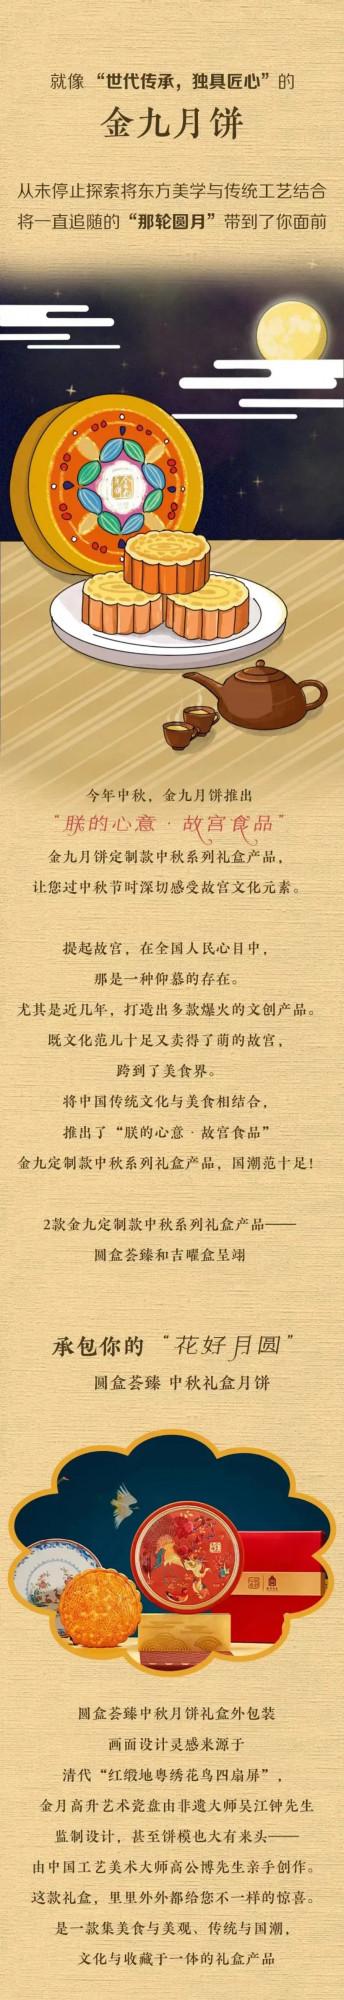 就像“世代传承，独具匠心”的
金九月饼
从未停止探索将东方美学与传统工艺结合
将一直追随的“那轮圆月”带到了你面前
今年中秋，金九月饼推出
“朕的心意·故宫食品”
金九月饼定制款中秋系列礼盒产品，
让您过中秋节时深切感受故宫文化元素。
提起故宫，在全国人民心目中，
那是一种仰慕的存在。
尤其是近几年，打造出多款爆火的文创产品。
既文化范儿十足又卖得了萌的故宫，
跨到了美食界。
将中国传统文化与美食相结合，
推出了“朕的心意·故宫食品”
金九定制款中秋系列礼盒产品，国潮范十足！
2款金九定制款中秋系列礼盒产品——
圆盒荟臻和吉曜盒呈翊
承包你的“花好月圆”
圆盒荟臻 中秋礼盒月饼
圆盒荟臻中秋月饼礼盒外包装
画面设计灵感来源于
清代“红缎地粤绣花鸟四扇屏”，
金月高升艺术瓷盘由非遗大师吴江钟先生
监制设计，甚至饼模也大有来头——
由中国工艺美术大师高公博先生亲手创作。
这款礼盒，里里外外都给您不一样的惊喜。
是一款集美食与美观、传统与国潮，
文化与收藏于一体的礼盒产品